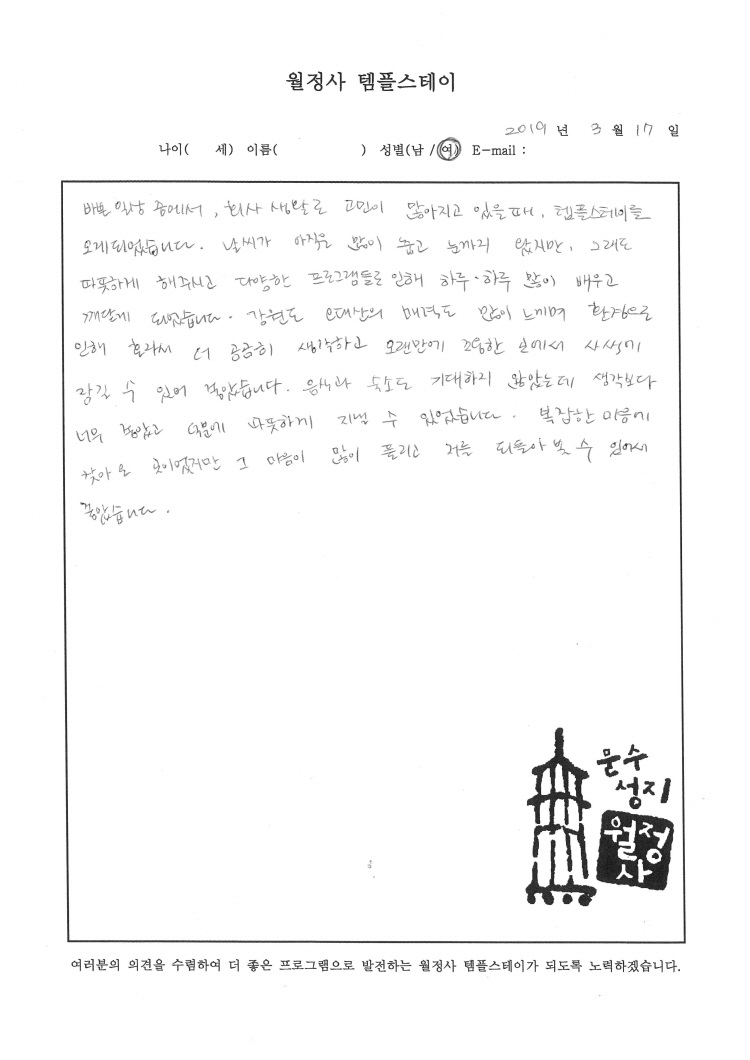 월정사 템플스테이
2019 년 3 월 17 일
나이( 세) 이름( ) 성별(남 / 여) E-mail :
바쁜 일상 중에서, 회사 생활로 고민이 많아지고 있을때, 템플스테이를
오게되었습니다. 날씨가 아직은 많이 춥고 눈까지 왔지만, 그래도
따뜻하게 해주시고 다양한 프로그램들로 인해 하루·하루 많이 배우고
깨닫게 되었습니다. 강원도 오대산의 매력도 많이 느끼며 환경으로
인해 혼자서 더 곰곰히 생각하고 오랜만에 조용한 곳에서 사색에
잠길 수 있어 좋았습니다. 음식과 숙소도 기대하지 않았는데 생각보다
너무 좋았고 덕분에 따뜻하게 지낼 수 있었습니다. 복잡한 마음에
찾아 온 곳이었지만 그 마음이 많이 풀리고 저를 되돌아 볼 수 있어서
좋았습니다.
문수
성지
월정
사
여러분의 의견을 수렴하여 더 좋은 프로그램으로 발전하는 월정사 템플스테이가 되도록 노력하겠습니다.